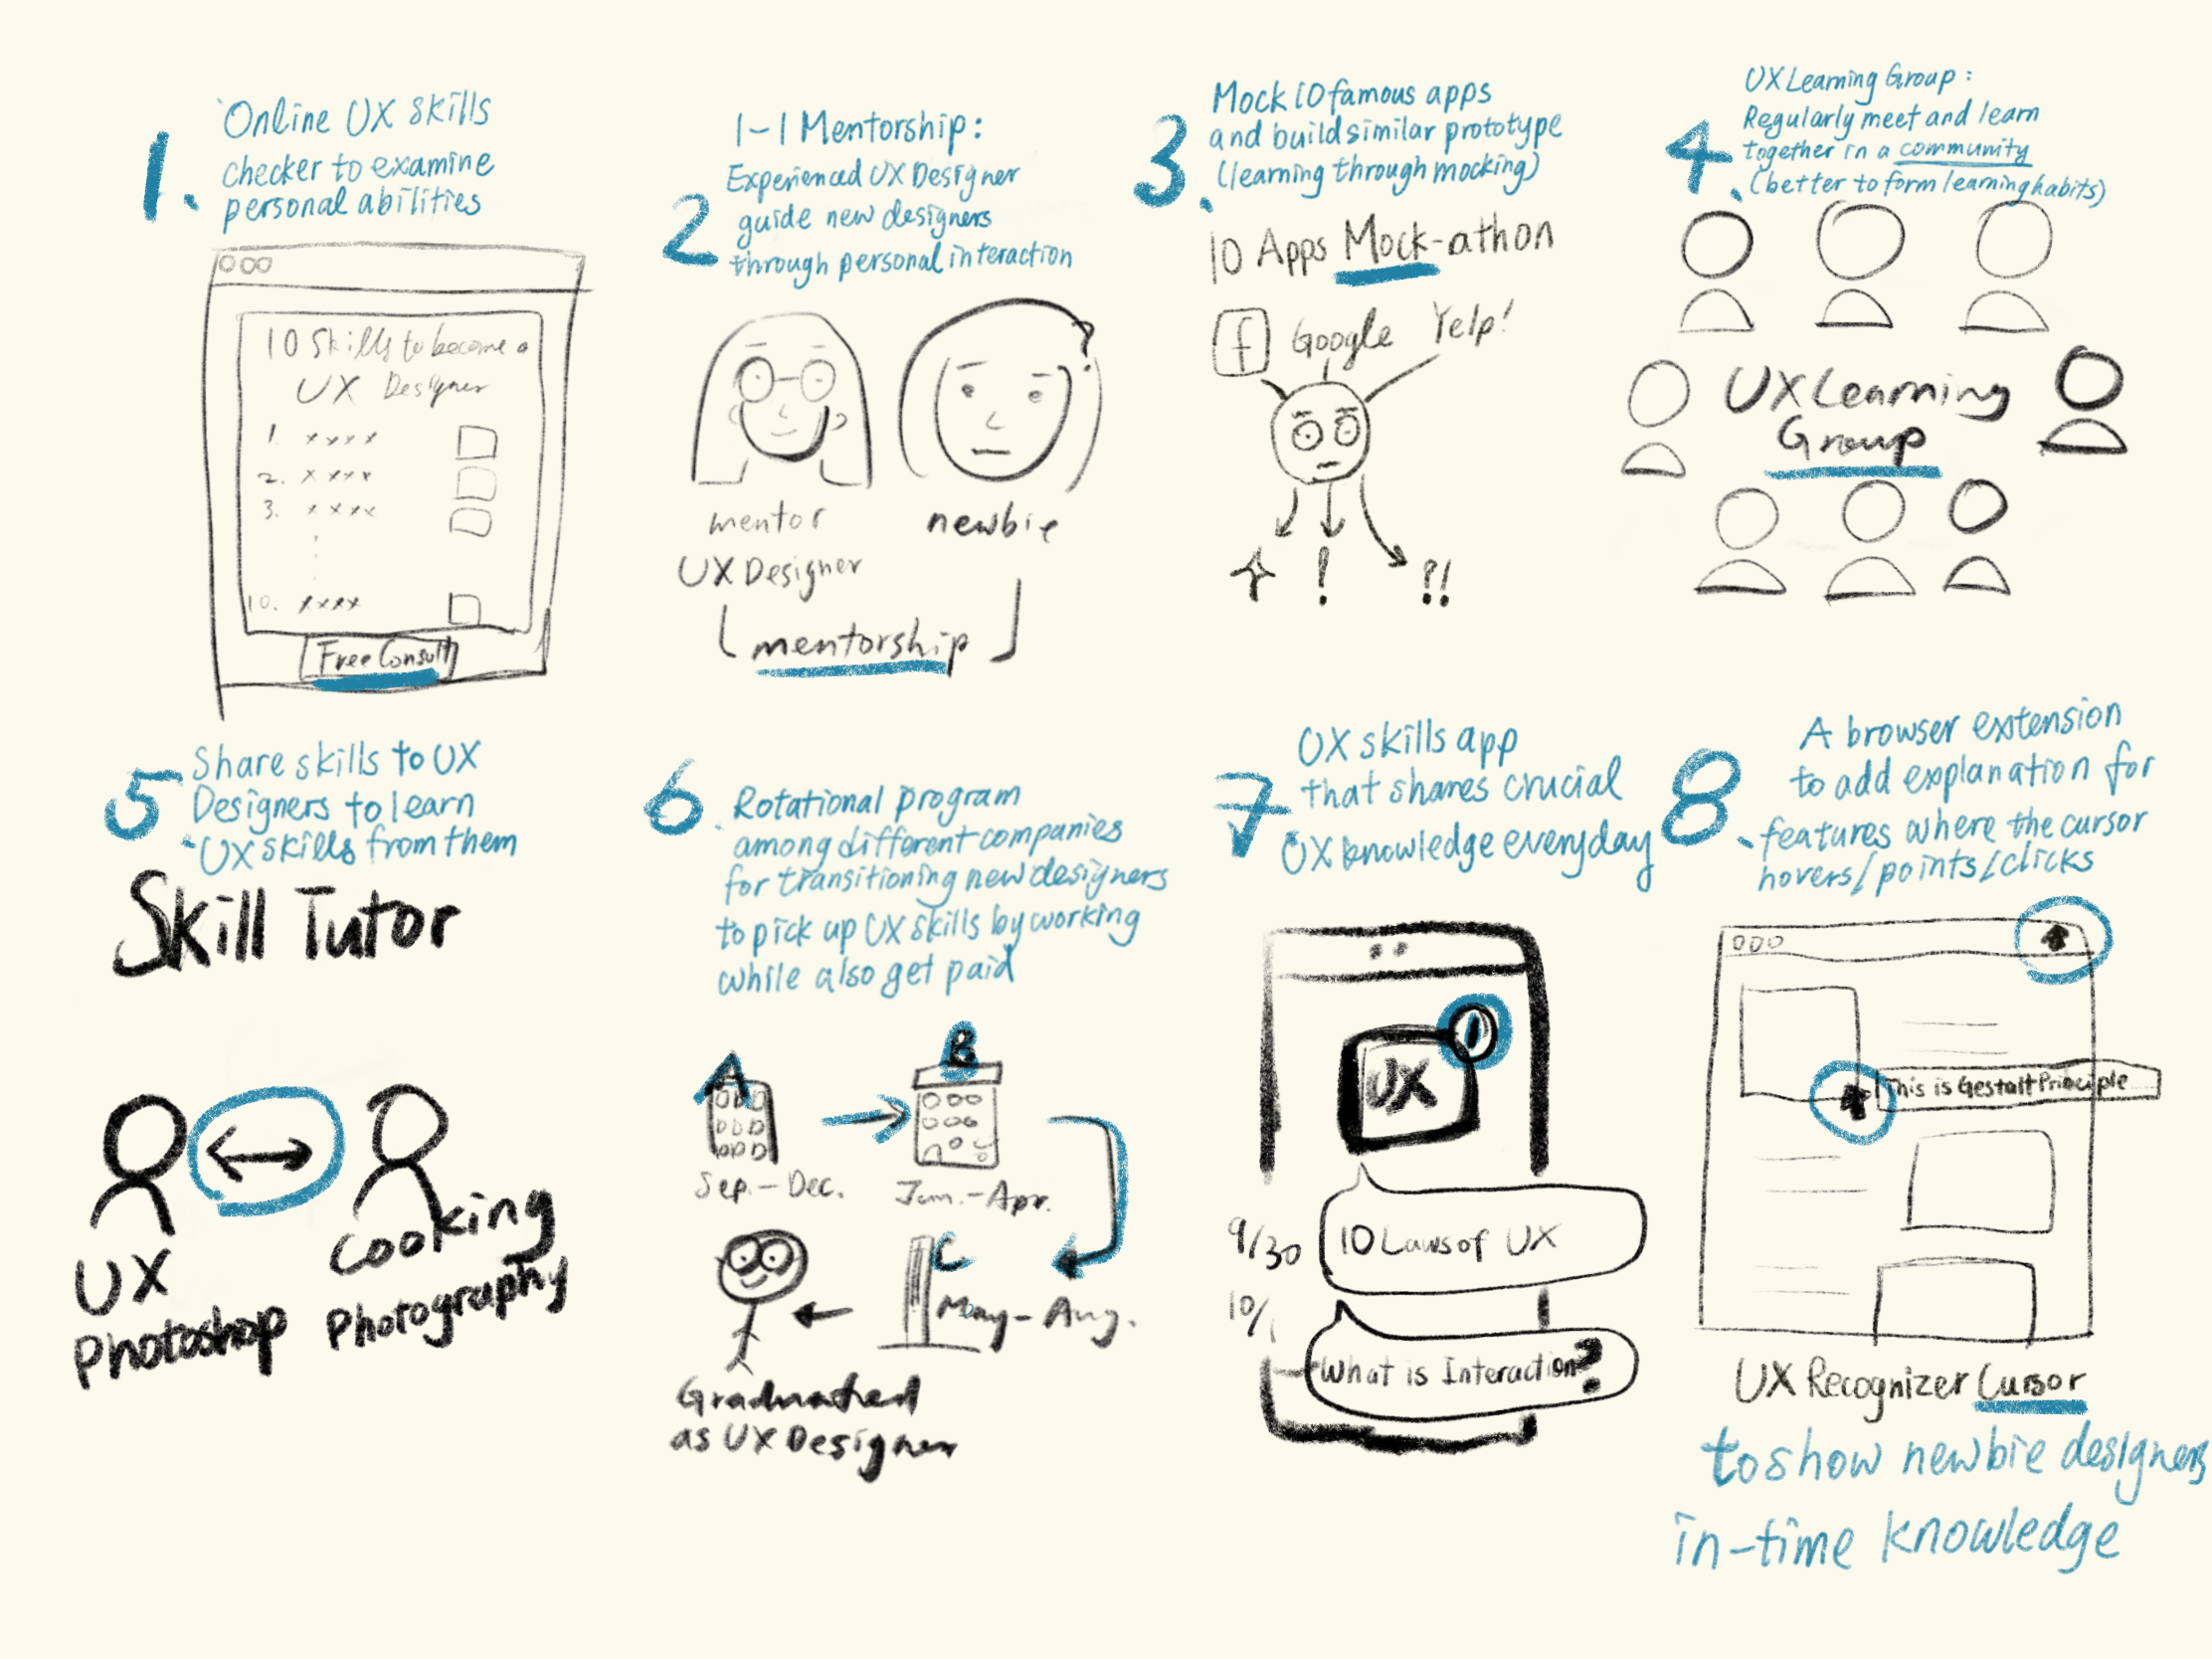 1.
Online UX skills
checker to examine
personal abilities
10 Skills to become a
UX Designer
1. xxxx
2. xxxx
3. xxxx
10. xxxx
Free Consult
2
1-1 Mentorship:
Experienced UX Designer
guide new designers
through personal interaction
?
mentor
UX Designer
newbie
mentorship
3.
Mock 10 famous apps
and build similar prototype
(learning through mocking)
10 Apps Mock-athon
f Google Yelp!
! ?!
4.
UX Learning Group:
Regularly meet and learn
together in a community
(better to form learning habits)
UX Learning
Group
5
Share skills to UX
Designers to learn
UX skills from them
Skill Tutor
UX
Photoshop
Cooking
Photography
6.
Rotational program
among different companies
for transitioning new designers
to pick up UX skills by working
while also get paid
A
B
Sep.-Dec.
Jan.-Apr.
C
May-Aug.
Graduated
as UX Designer
7
UX skills app
that shares crucial
UX knowledge everyday
UX
1
9/30
10 Laws of UX
10/1
What is Interaction?
8.
A browser extension
to add explanation for
features where the cursor
hovers/points/clicks
This is Gestalt Principle
UX Recognizer Cursor
to show newbie designers
in-time knowledge